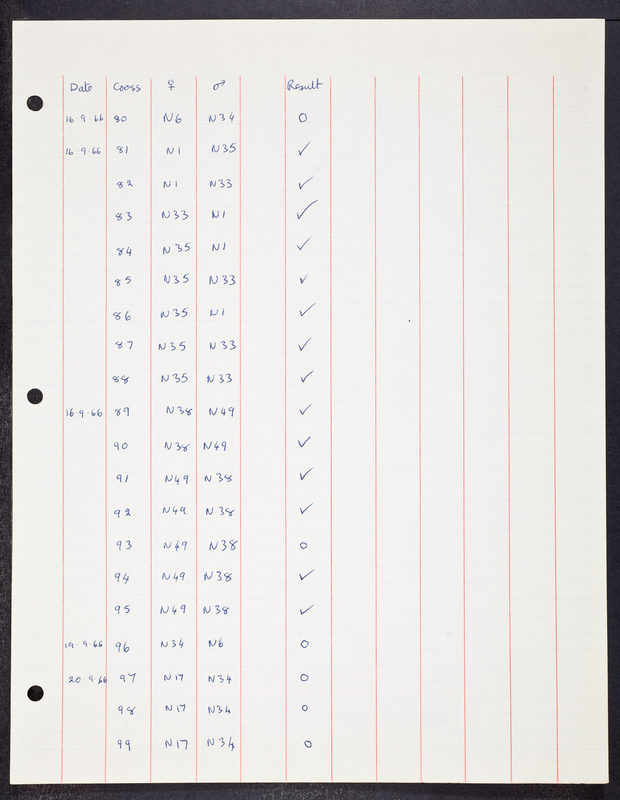 Date Cross ♀ ♂ Result
16.9.66 80 N6 N34 O
16.9.66 81 N1 N35 ✓
82 N1 N33 ✓
83 N33 N1 ✓
84 N35 N1 ✓
85 N35 N33 ✓
86 N35 N1 ✓
87 N35 N33 ✓
88 N35 N33 ✓
16.9.66 89 N38 N49 ✓
90 N38 N49 ✓
91 N49 N38 ✓
92 N49 N38 ✓
93 N49 N38 O
94 N49 N38 ✓
95 N49 N38 ✓
19.9.66 96 N34 N6 O
20.9.66 97 N17 N34 O
98 N17 N34 O
99 N17 N34 O